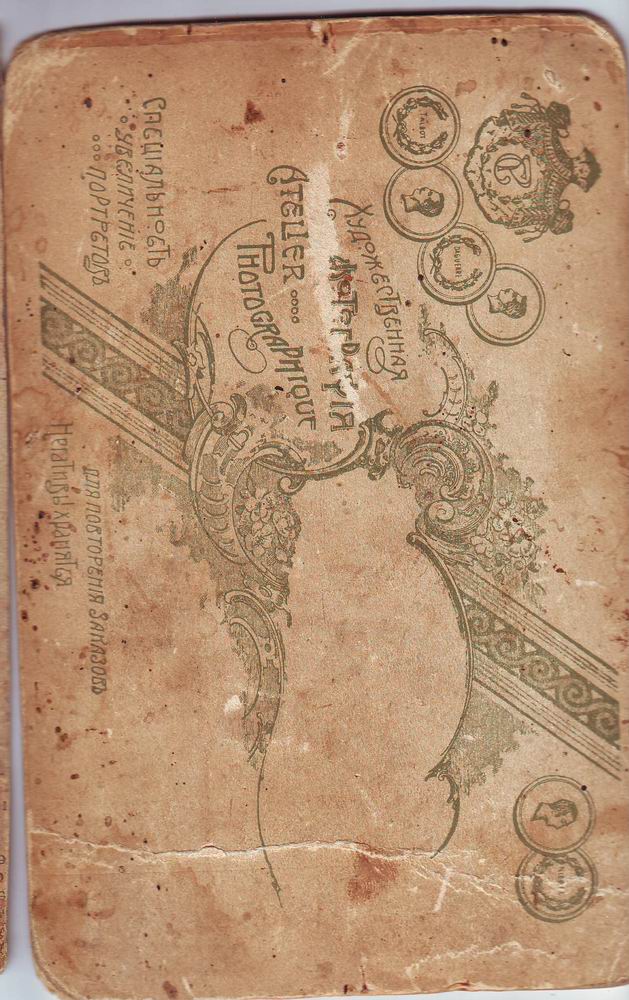 TALBOT
DAGUERRE
Художественная
Фотографія
Atelier
Photographique
Спеціальность
увеличеніе
портретовъ
Негативы хранятся
для повторенія заказовъ